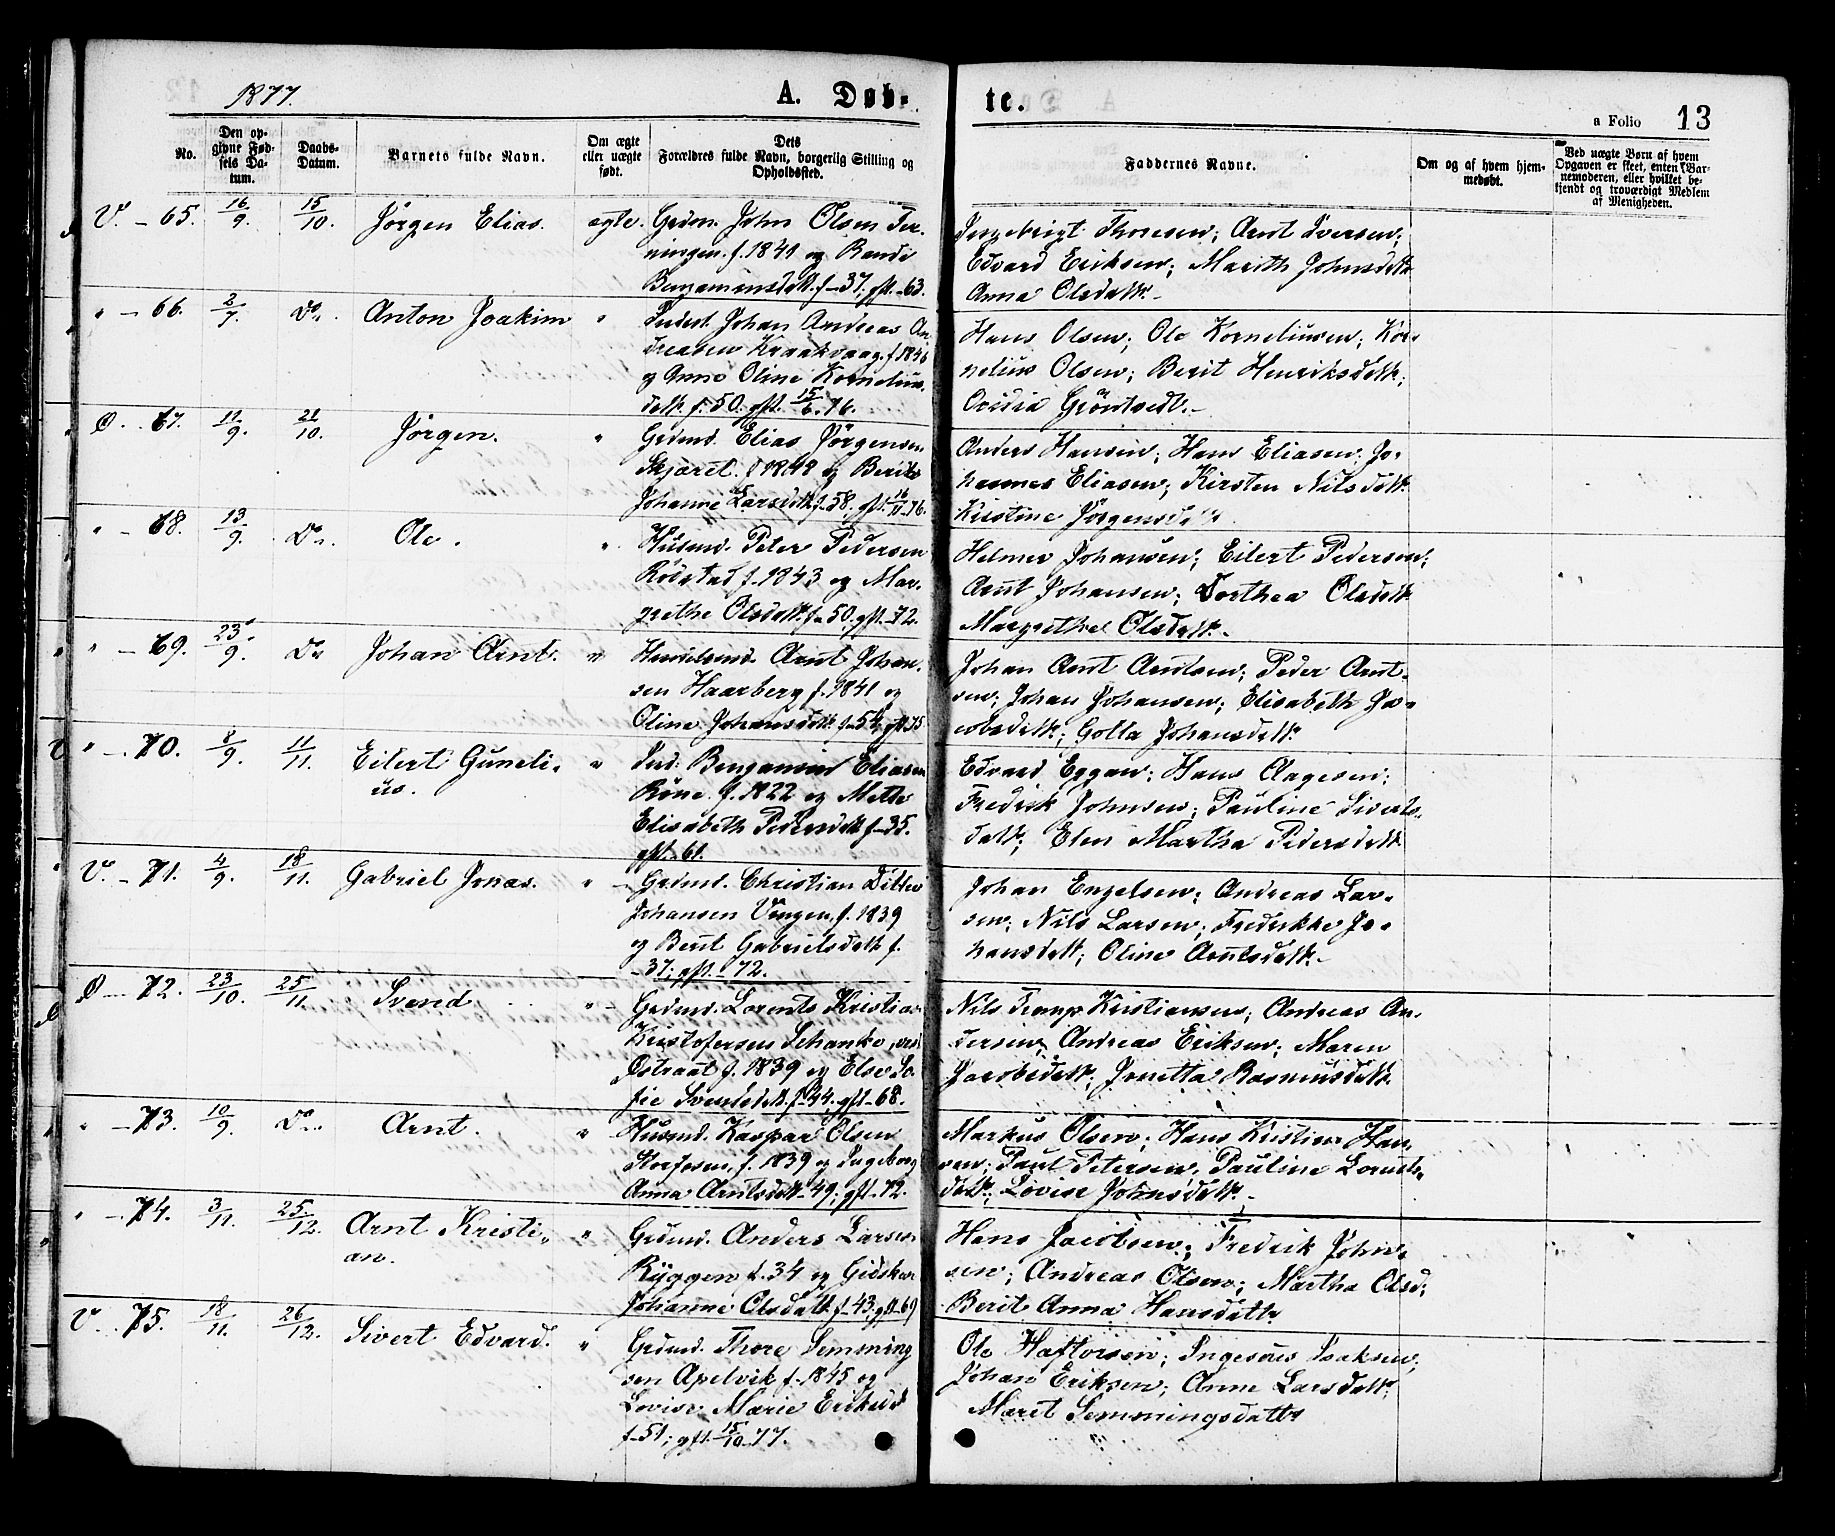 1877.
A. Døb-
te.
a Folio 13
No.
Den op-
givne Fød-
sels Da-
tum.
Daabs-
Datum.
Barnets fulde Navn.
Om ægte
eller uægte
født.
Dets
Forældres fulde Navn, borgerlig Stilling og
Opholdssted.
Faddernes Navne.
Om og af hvem hjem-
medøbt.
Ved uægte Børn af hvem
Opgaven er skeet, enten Bar-
nemoderen, eller hvilket be-
kjendt og troværdigt Medlem
af Menigheden.
V. - 65. 16/9. 15/10. Jörgen Elias. ægte. Grdm. John Olsen Ter-
ningen. f. 1841 og Randi
Benjaminsdatt. f - 37, gft. - 63.
Ingebrigt Thoresen; Arnt Iversen;
Edvard Eriksen; Marith Johnsdatt
Anna Olsdatt. -
" - 66. 2/7. Do. Anton Joakim "
Johan Andreas An-
dreasen Kraakvaag. f. 1846
og Anne Oline Kornelius-
datt. f. 50. gft. 15/6. 76.
Hans Olsen; Ole Korneliussen; Kor-
nelius Olsen; Berit Henriksdatt.;
Ovidia Gröntvedt. -
Ø. - 67. 11/9. 21/10. Jörgen. "
Grdmd. Elias Jörgensen
Skjæret. f 1848 og Berit
Johanne Larsdatt. f - 58, gft. - 76.
Anders Hansen; Hans Eliasen; Jo-
hannes Eliasen; Kirsten Nilsdatt.
Kristine Jörgensdatt.
" - 68. 13/9. Do. Ole. "
Husmd. Peter Pedersen
Rödstad f. 1843 og Mar-
grethe Olsdatt. f - 50, gft - 72.
Helmer Johansen; Eilert Pedersen;
Arnt Johansen; Dorthea Olsdatt.
Margrethe Olsdatt. -
" - 69. 23/9. Do Johan Arnt. "
Handelsmd. Arnt Johan-
sen Haarberg f. 1841 og
Oline Johansdatt. f - 54, gft. 75
Johan Arnt Arntsen; Peder Arnt-
sen; Johan Johansen; Elisabeth Ja-
cobsdatt; Golla Johansdatt.
" - 70. 8/9. 11/11. Eilert Guneli-
us. "
Ind. Benjamin Eliasen
Röne. f. 1822 og Mette
Elisabeth Pedersdatt f - 35.
gft. - 61.
Edvard Eggan; Hans Aagesen;
Fredrik Johnsen; Pauline Siverts-
datt.; Elen Martha Pedersdatt
V. - 71. 4/9. 18/11. Gabriel Jonas. "
Grdmd. Christian Ditlev
Johansen Vingen. f. 1839
og Berit Gabrielsdatt f.
- 37; gft. - 72.
Johan Engelsen; Andreas Lar-
sen; Nils Larsen; Fredrikke Jo-
hansdatt; Oline Arntsdatt. -
Ø - 72. 23/10. 25/11. Svend "
Grdmd. Lorents Kristian
Kristofersen Schanke, ved
Østraat f. 1839 og Else So-
fie Svendsdatt. f - 44. gft - 68.
Nils Kristiansen; Andreas An-
dersen; Andreas Eriksen; Maren
Jacobsdatt; Jonetta Rasmusdatt.
" - 73. 10/9. Do. Arnt. "
Husmd. Kaspar Olsen
f. 1839 og Ingeborg
Anna Arntsdatt - 49; gft - 72.
Markus Olsen; Hans Kristian Han-
sen; Paul Petersen; Pauline Lornts-
datt.; Lovise Johnsdatt. -
" - 74. 3/11. 25/12. Arnt Kristi-
an. "
Grdmd. Anders Larsen
Ryggen f. 34 og Gidsken
Johanne Olsdatt. f - 43, gft - 69
Hans Jacobsen; Fredrik John-
sen; Andreas Olsen; Martha Olsd;
Berit Anna Hansdatt.
V. - 75. 18/11. 26/12. Sivert Edvard. "
Grdmd. Thore Semming
sen Apelvik f - 1845 og
Lovise Marie Eriksd
f - 51; gft. 15/10 - 77.
Ole Haftorsen; Isaksen;
Johan Eriksen; Anne Larsdatt.
Maret Semmingsdatt